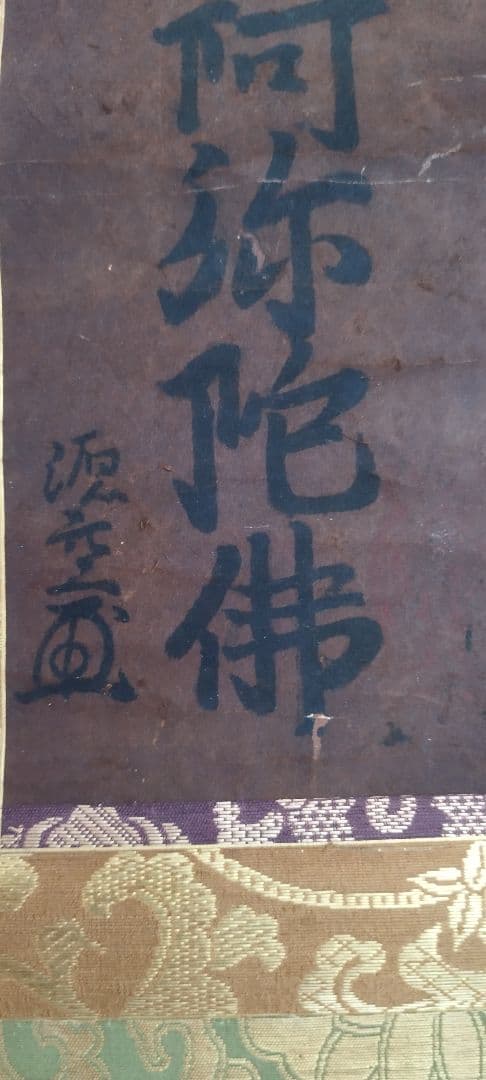 阿弥陀佛
源空